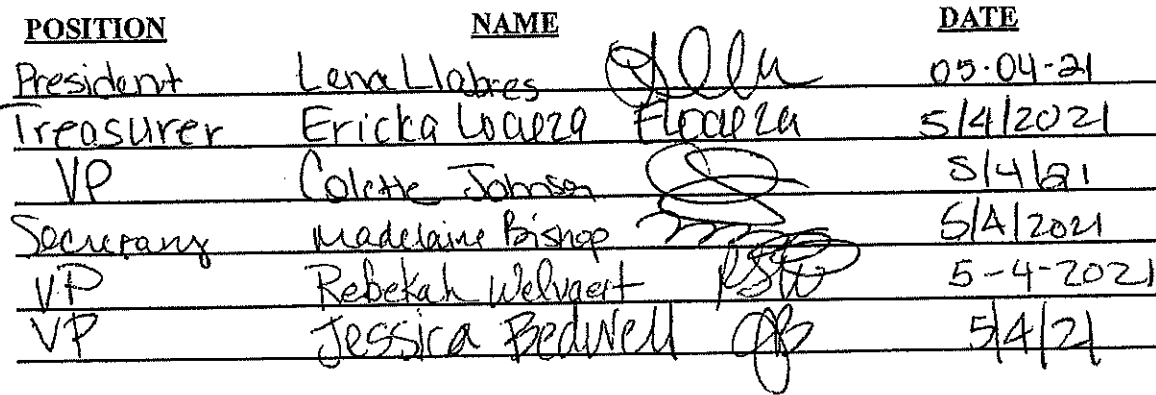 POSITION NAME DATE
President Lena Llabres 05-04-21
Treasurer Ericka Loaeza ELoaeza 5/4/2021
VP Colette Johnson 5/4/21
Secretary Madelaine Bishop 5/4/2021
VP Rebekah Welvaert RSW 5-4-2021
VP Jessica Bedwell JB 5/4/21